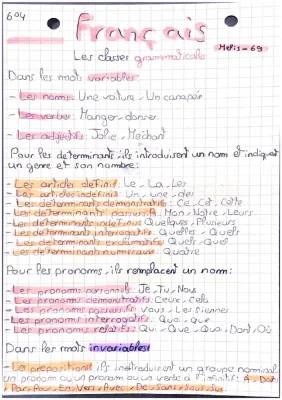 604
Français
Melis-69
Les classes grammaticale
Dans les mots variables
- Les noms: Une voiture, Un canapé
- Les verbes: Manger - danser
- Les adjectifs: Jolie, Méchant
Pour les déterminant, ils introduisent un nom et indiquent
un genre et son nombre:
- Les articles définit: Le, La, Les
- Les articles indéfinis: Un, une, des
- Les déterminants démonstratifs: Ce, Cet, Cette
- Les déterminants possessifs: Mon, Notre, Leurs
- Les déterminants indéfinus: Quelques, Plusieurs
- Les déterminants interrogatifs: Quelles, Quels
- Les déterminants exclamatifs: Quels, Quel
- Les déterminants numéraux: Quatre
Pour les pronoms, ils remplacent un nom:
- Les pronoms personnels: Je, Tu, Nous
- Les pronoms démonstratifs: Ceux, Cela
- Les pronoms possessifs: Les tienne
- Les pronoms interrogatifs: Que, Qui
- Les pronoms relatifs: Qui, Que, Quoi, Dont, Où
Dans les mots invariables
- La préposition: ils introduisent un groupe nominal
un pronom ou un verbe à l'infinitif: A, Dans
Par, Pour, En, Vers, Avec, De, Sans, Sous, Sur